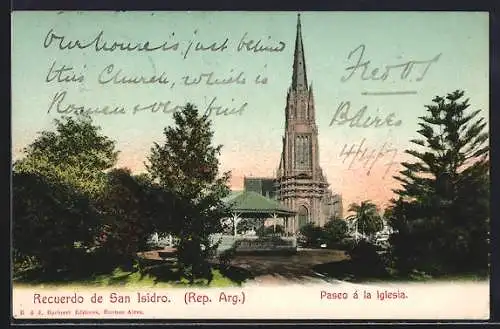 Our house is just behind
this Church, which is
Roman & very
B Aires.
4/4/07
Recuerdo de San Isidro. (Rep. Arg.)
Paseo á la Iglesia.
R. & J. Barbieri Editores, Buenos Aires.